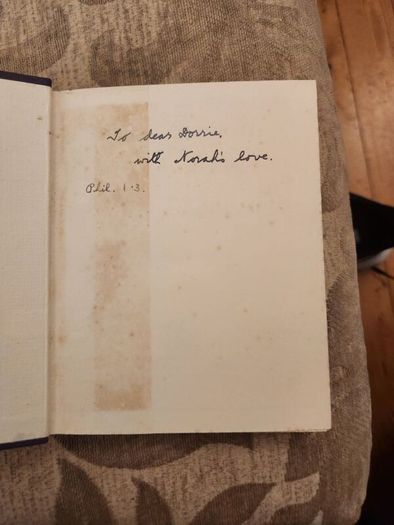 To dear Dorrie,
with Norah's love.
Phil. 1.3.